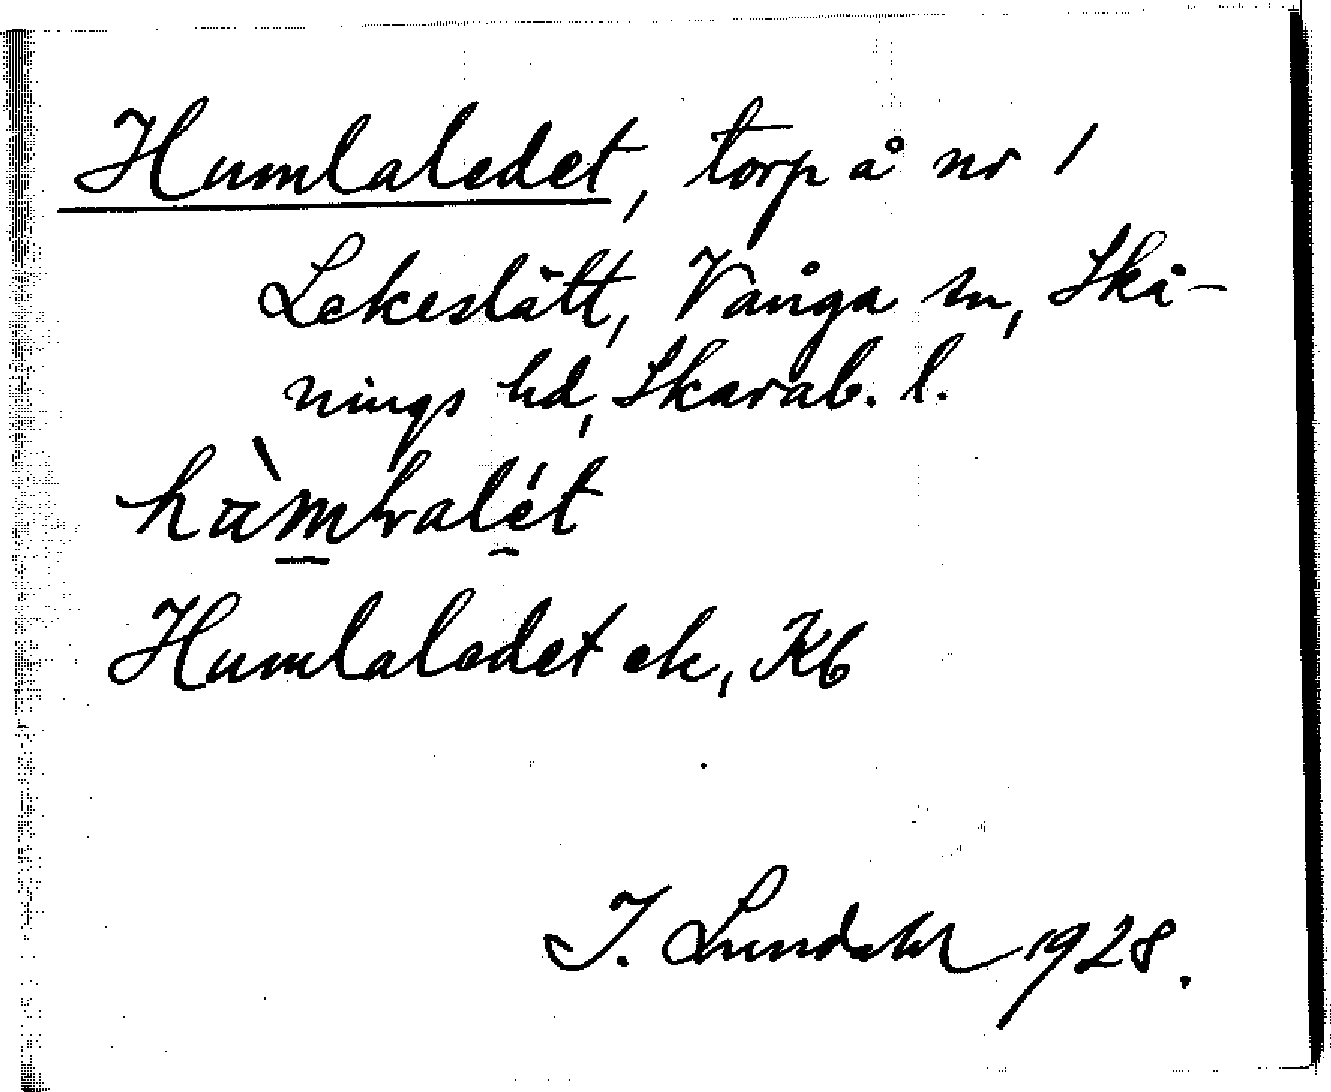 Humlaledet, torp å nr 1
Lekeslätt, Vånga sn, Skå-
nings hd, Skarab. l.
Humlaledet ek, Kb
I. Lundahl 1928.